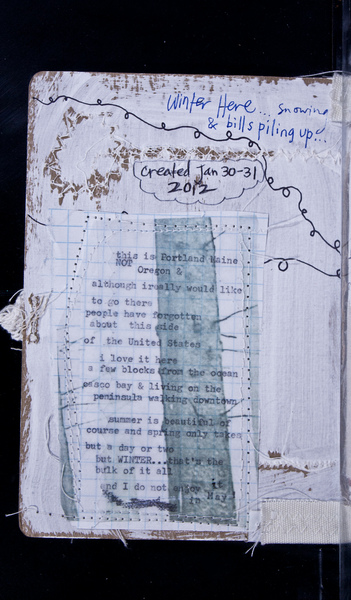 Winter Here... snowing
& bills piling up...
created Jan 30-31
2012
this is Portland Maine
NOT
Oregon &
although i really would like
to go there
people have forgotten
about this side
of the United States
i love it here
a few blocks from the ocean
casco bay & living on the
peninsula walking downtown
summer is beautiful of
course and spring only takes
but a day or two
but WINTER...that's the
bulk of it all
and I do not enjoy it
in May